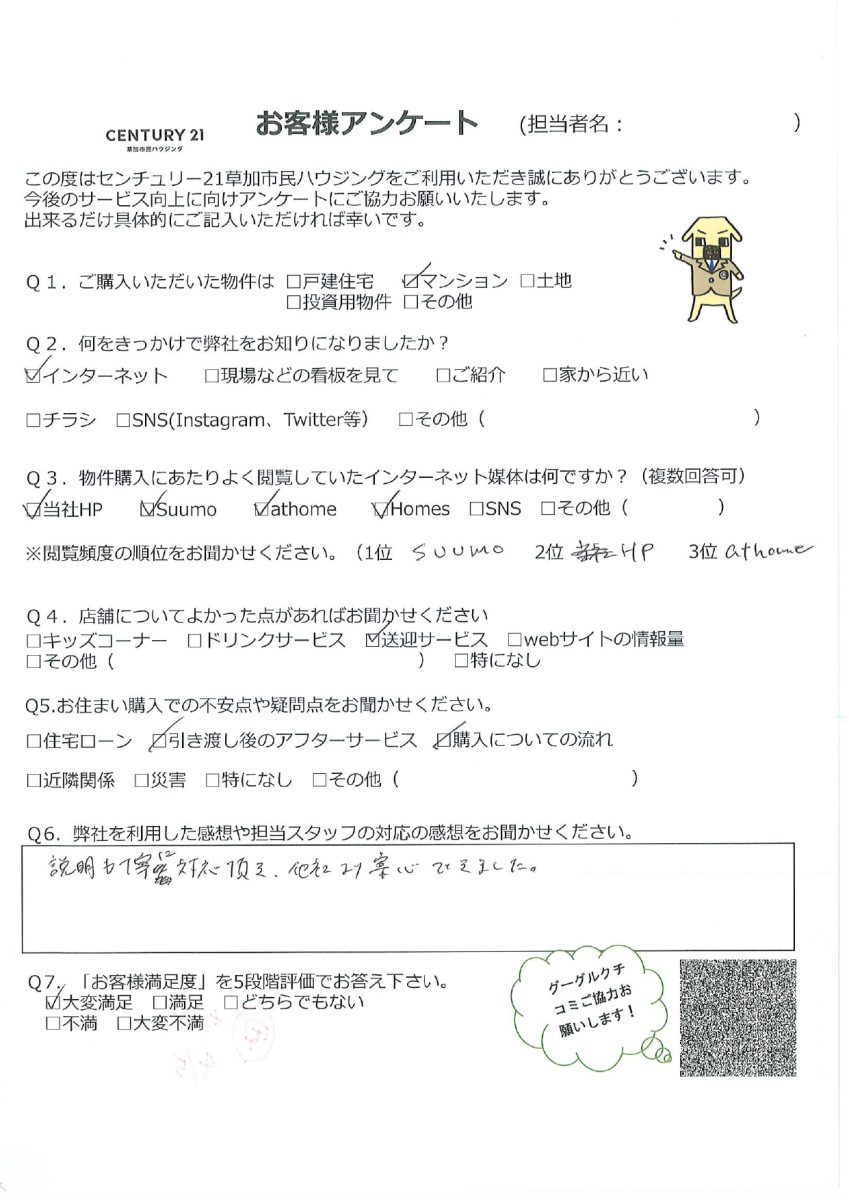 CENTURY 21
草加市民ハウジング
お客様アンケート (担当者名： )
この度はセンチュリー21草加市民ハウジングをご利用いただき誠にありがとうございます。
今後のサービス向上に向けアンケートにご協力お願いいたします。
出来るだけ具体的にご記入いただければ幸いです。
Q1．ご購入いただいた物件は □戸建住宅 ☑マンション □土地
□投資用物件 □その他
Q2．何をきっかけで弊社をお知りになりましたか？
☑インターネット □現場などの看板を見て □ご紹介 □家から近い
□チラシ □SNS(Instagram、Twitter等) □その他 ( )
Q3．物件購入にあたりよく閲覧していたインターネット媒体は何ですか？（複数回答可）
☑当社HP ☑Suumo ☑athome ☑Homes □SNS □その他 ( )
※閲覧頻度の順位をお聞かせください。（1位 SUUMO 2位 HP 3位 athome
Q4．店舗についてよかった点があればお聞かせください
□キッズコーナー □ドリンクサービス ☑送迎サービス □webサイトの情報量
□その他 ( ) □特になし
Q5.お住まい購入での不安点や疑問点をお聞かせください。
□住宅ローン ☑引き渡し後のアフターサービス ☑購入についての流れ
□近隣関係 □災害 □特になし □その他 ( )
Q6．弊社を利用した感想や担当スタッフの対応の感想をお聞かせください。
説明も丁寧に対応頂き、他社より安心できました。
Q7．「お客様満足度」を5段階評価でお答え下さい。
☑大変満足 □満足 □どちらでもない
□不満 □大変不満
グーグルクチ
コミご協力お
願いします！